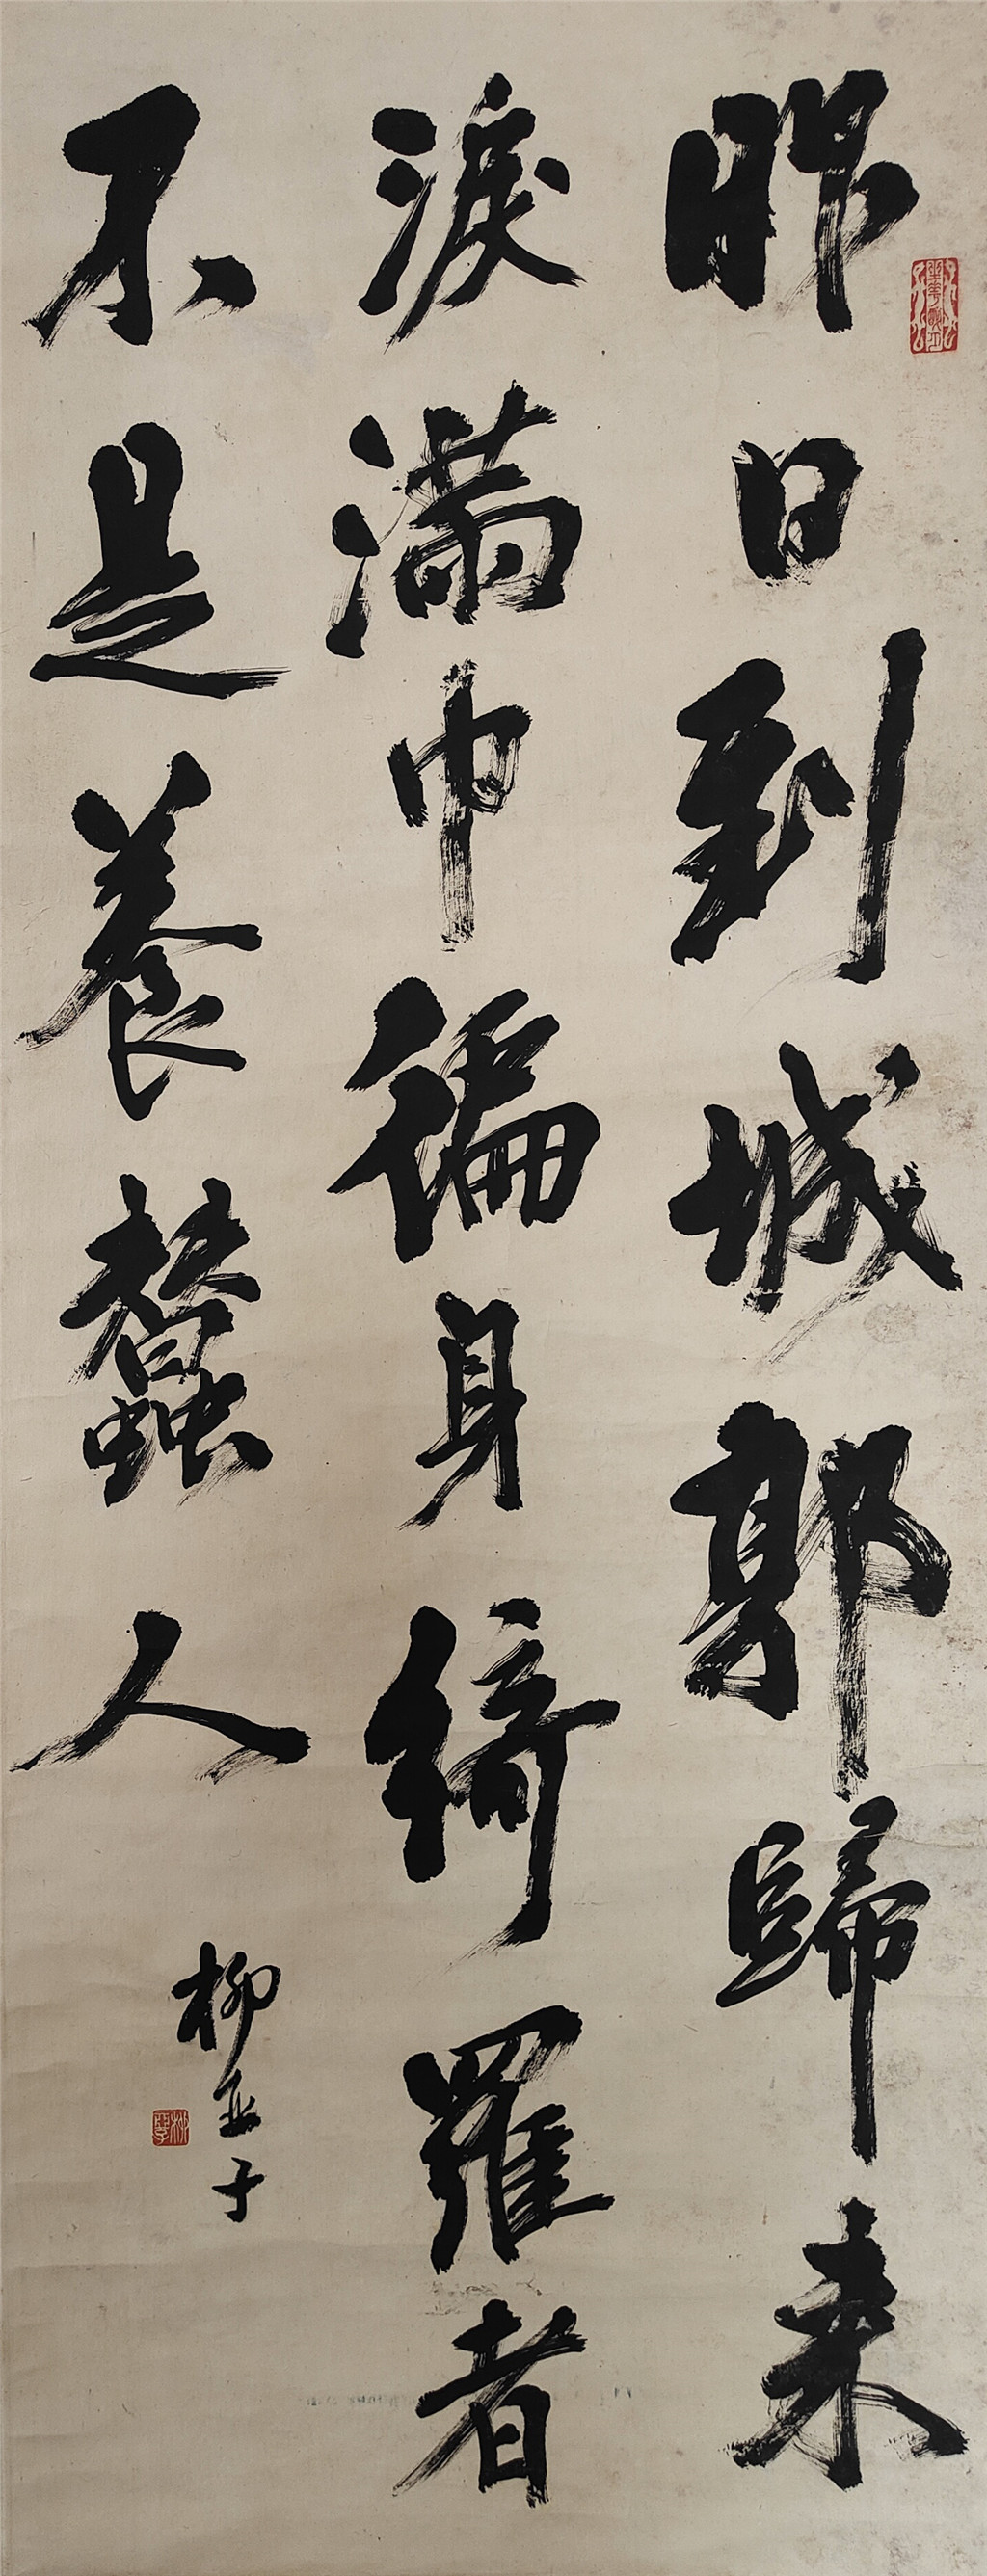 昨日到城郭歸来
淚滿巾徧身綺羅者
不是養蠶人
柳亞子